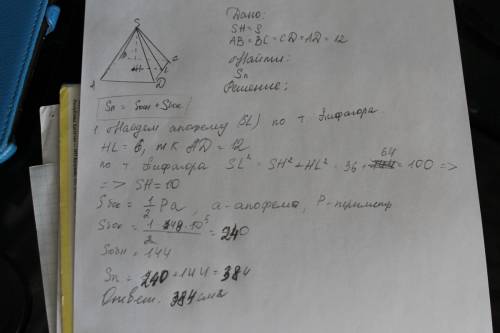 S
B
C
H
L
A
D
Дано:
SH = 8
AB = BC = CD = AD = 12
Найти:
Sп
Решение:
Sп = Sосн + Sбок
1 Найдем апофему (SL) по т. Пифагора
HL = 6, т к AD = 12
по т. Пифагора SL² = SH² + HL² = 36 + 64 = 100 =>
=> SH = 10
Sбок = 1/2 Pa, a - апофема, P - периметр
Sбок = 1 · 48 · 10 / 2 = 240
Sосн = 144
Sп = 240 + 144 = 384
Ответ. 384 см2